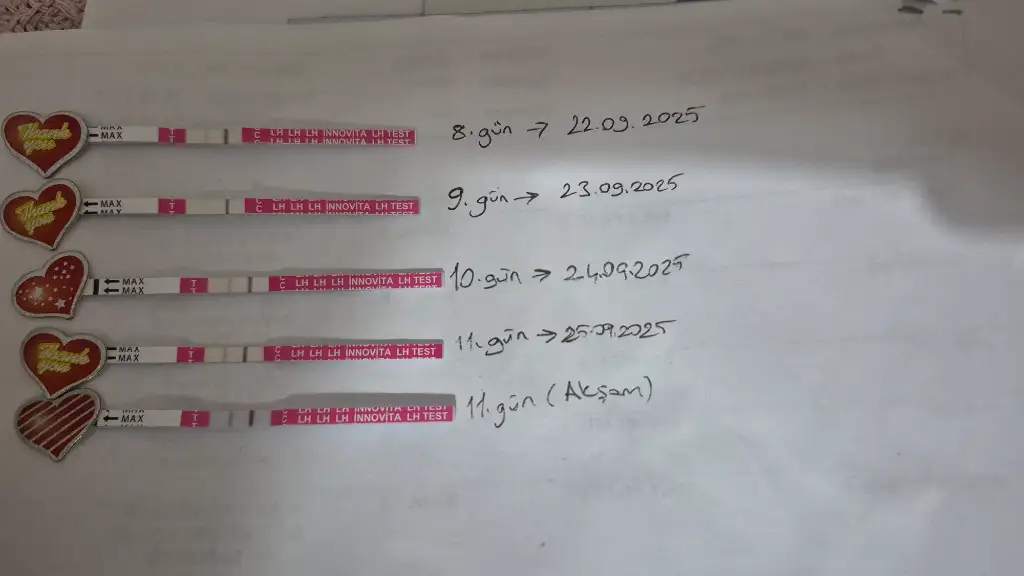 Thank you
MAX
MAX
T
T
C
C
LH LH LH İNNOVİTA LH TEST
LH LH LH İNNOVİTA LH TEST
8.gün → 22.09.2025
Thank you
MAX
MAX
T
T
C
C
LH LH LH İNNOVİTA LH TEST
LH LH LH İNNOVİTA LH TEST
9.gün → 23.09.2025
MAX
MAX
T
T
C
LH LH LH İNNOVİTA LH TEST
LH LH LH İNNOVİTA LH TEST
10.gün → 24.09.2025
Thank you
MAX
MAX
T
T
C
LH LH LH İNNOVİTA LH TEST
11.gün → 25.09.2025
MAX
MAX
T
T
C
LH LH LH İNNOVİTA LH TEST
LH LH LH İNNOVİTA LH TEST
11.gün (Akşam)